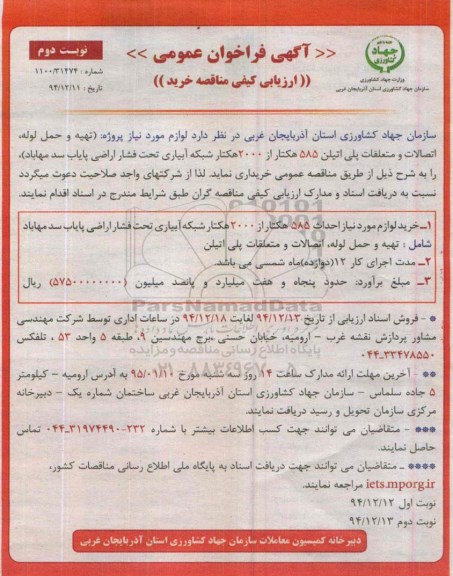 نوبت دوم
<< آگهی فراخوان عمومی >>
(( ارزیابی کیفی مناقصه خرید ))
شماره : ۱۱۰۰/۳۱۴۷۴
تاریخ : ۹۴/۱۲/۱۱
جهاد کشاورزی
وزارت جهاد کشاورزی
سازمان جهاد کشاورزی استان آذربایجان غربی
سازمان جهاد کشاورزی استان آذربایجان غربی در نظر دارد لوازم مورد نیاز پروژه: (تهیه و حمل لوله،
اتصالات و متعلقات پلی اتیلن ۵۸۵ هکتار از ۲۰۰۰هکتار شبکه آبیاری تحت فشار اراضی پایاب سد مهاباد)،
را به شرح ذیل از طریق مناقصه عمومی خریداری نماید. لذا از شرکتهای واجد صلاحیت دعوت میگردد
نسبت به دریافت اسناد و مدارک ارزیابی کیفی مناقصه گران طبق شرایط مندرج در اسناد اقدام نمایند.
۱ــ خرید لوازم مورد نیاز احداث ۵۸۵ هکتار از ۲۰۰۰ هکتار شبکه آبیاری تحت فشار اراضی پایاب سد مهاباد
شامل : تهیه و حمل لوله، اتصالات و متعلقات پلی اتیلن
۲ــ مدت اجرای کار ۱۲(دوازده)ماه شمسی می باشد.
۳ــ مبلغ برآورد: حدود پنجاه و هفت میلیارد و پانصد میلیون (۵۷۵۰۰۰۰۰۰۰۰) ریال
* - فروش اسناد ارزیابی از تاریخ ۹۴/۱۲/۱۳ لغایت ۹۴/۱۲/۱۸ در ساعات اداری توسط شرکت مهندسی
مشاور پردازش نقشه غرب - ارومیه، خیابان حسنی ،برج مهندسین ۹، طبقه ۵ واحد ۵۳ ، تلفکس
۰۴۴-۳۳۴۷۸۵۵۰
** - آخرین مهلت ارائه مدارک ساعت ۱۴ روز سه شنبه مورخ ۹۵/۰۱/۱۰ به آدرس ارومیه - کیلومتر
۵ جاده سلماس - سازمان جهاد کشاورزی استان آذربایجان غربی ساختمان شماره یک - دبیرخانه
مرکزی سازمان تحویل و رسید دریافت نمایند.
*** - متقاضیان می توانند جهت کسب اطلاعات بیشتر با شماره ۲۳۲-۰۴۴-۳۱۹۷۴۴۹۰ تماس
حاصل نمایند.
**** ــ متقاضیان می توانند جهت دریافت اسناد به پایگاه ملی اطلاع رسانی مناقصات کشور،
iets.mporg.ir مراجعه نمایند.
نوبت اول ۹۴/۱۲/۱۲
نوبت دوم ۹۴/۱۲/۱۳
دبیرخانه کمیسیون معاملات سازمان جهاد کشاورزی استان آذربایجان غربی
ParsNamadData
پایگاه اطلاع رسانی مناقصه و مزایده
۰۲۱-۸۸۳۴۹۶۷۰